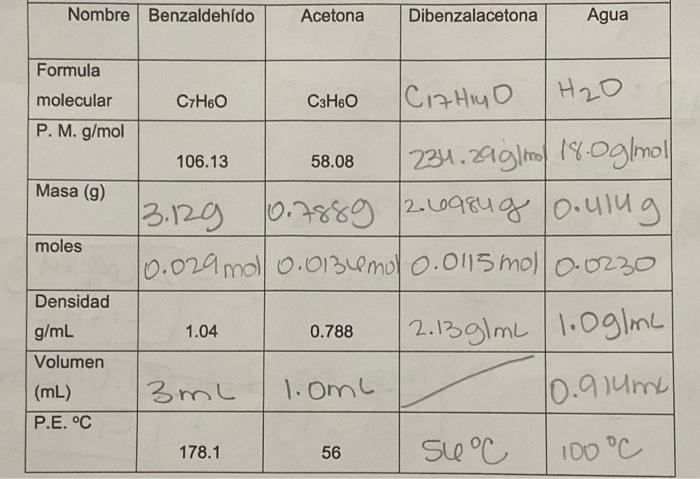 Nombre Benzaldehído Acetona Dibenzalacetona Agua
Formula molecular C7H6O C3H6O C17H14O H2O
P. M. g/mol 106.13 58.08 234.29g/mol 18.0g/mol
Masa (g) 3.12g 0.788g 2.6984g 0.414g
moles 0.029mol 0.0136mol 0.0115mol 0.0230
Densidad g/mL 1.04 0.788 2.13g/mL 1.0g/mL
Volumen (mL) 3mL 1.0mL 0.914mL
P.E. ºC 178.1 56 56°C 100°C